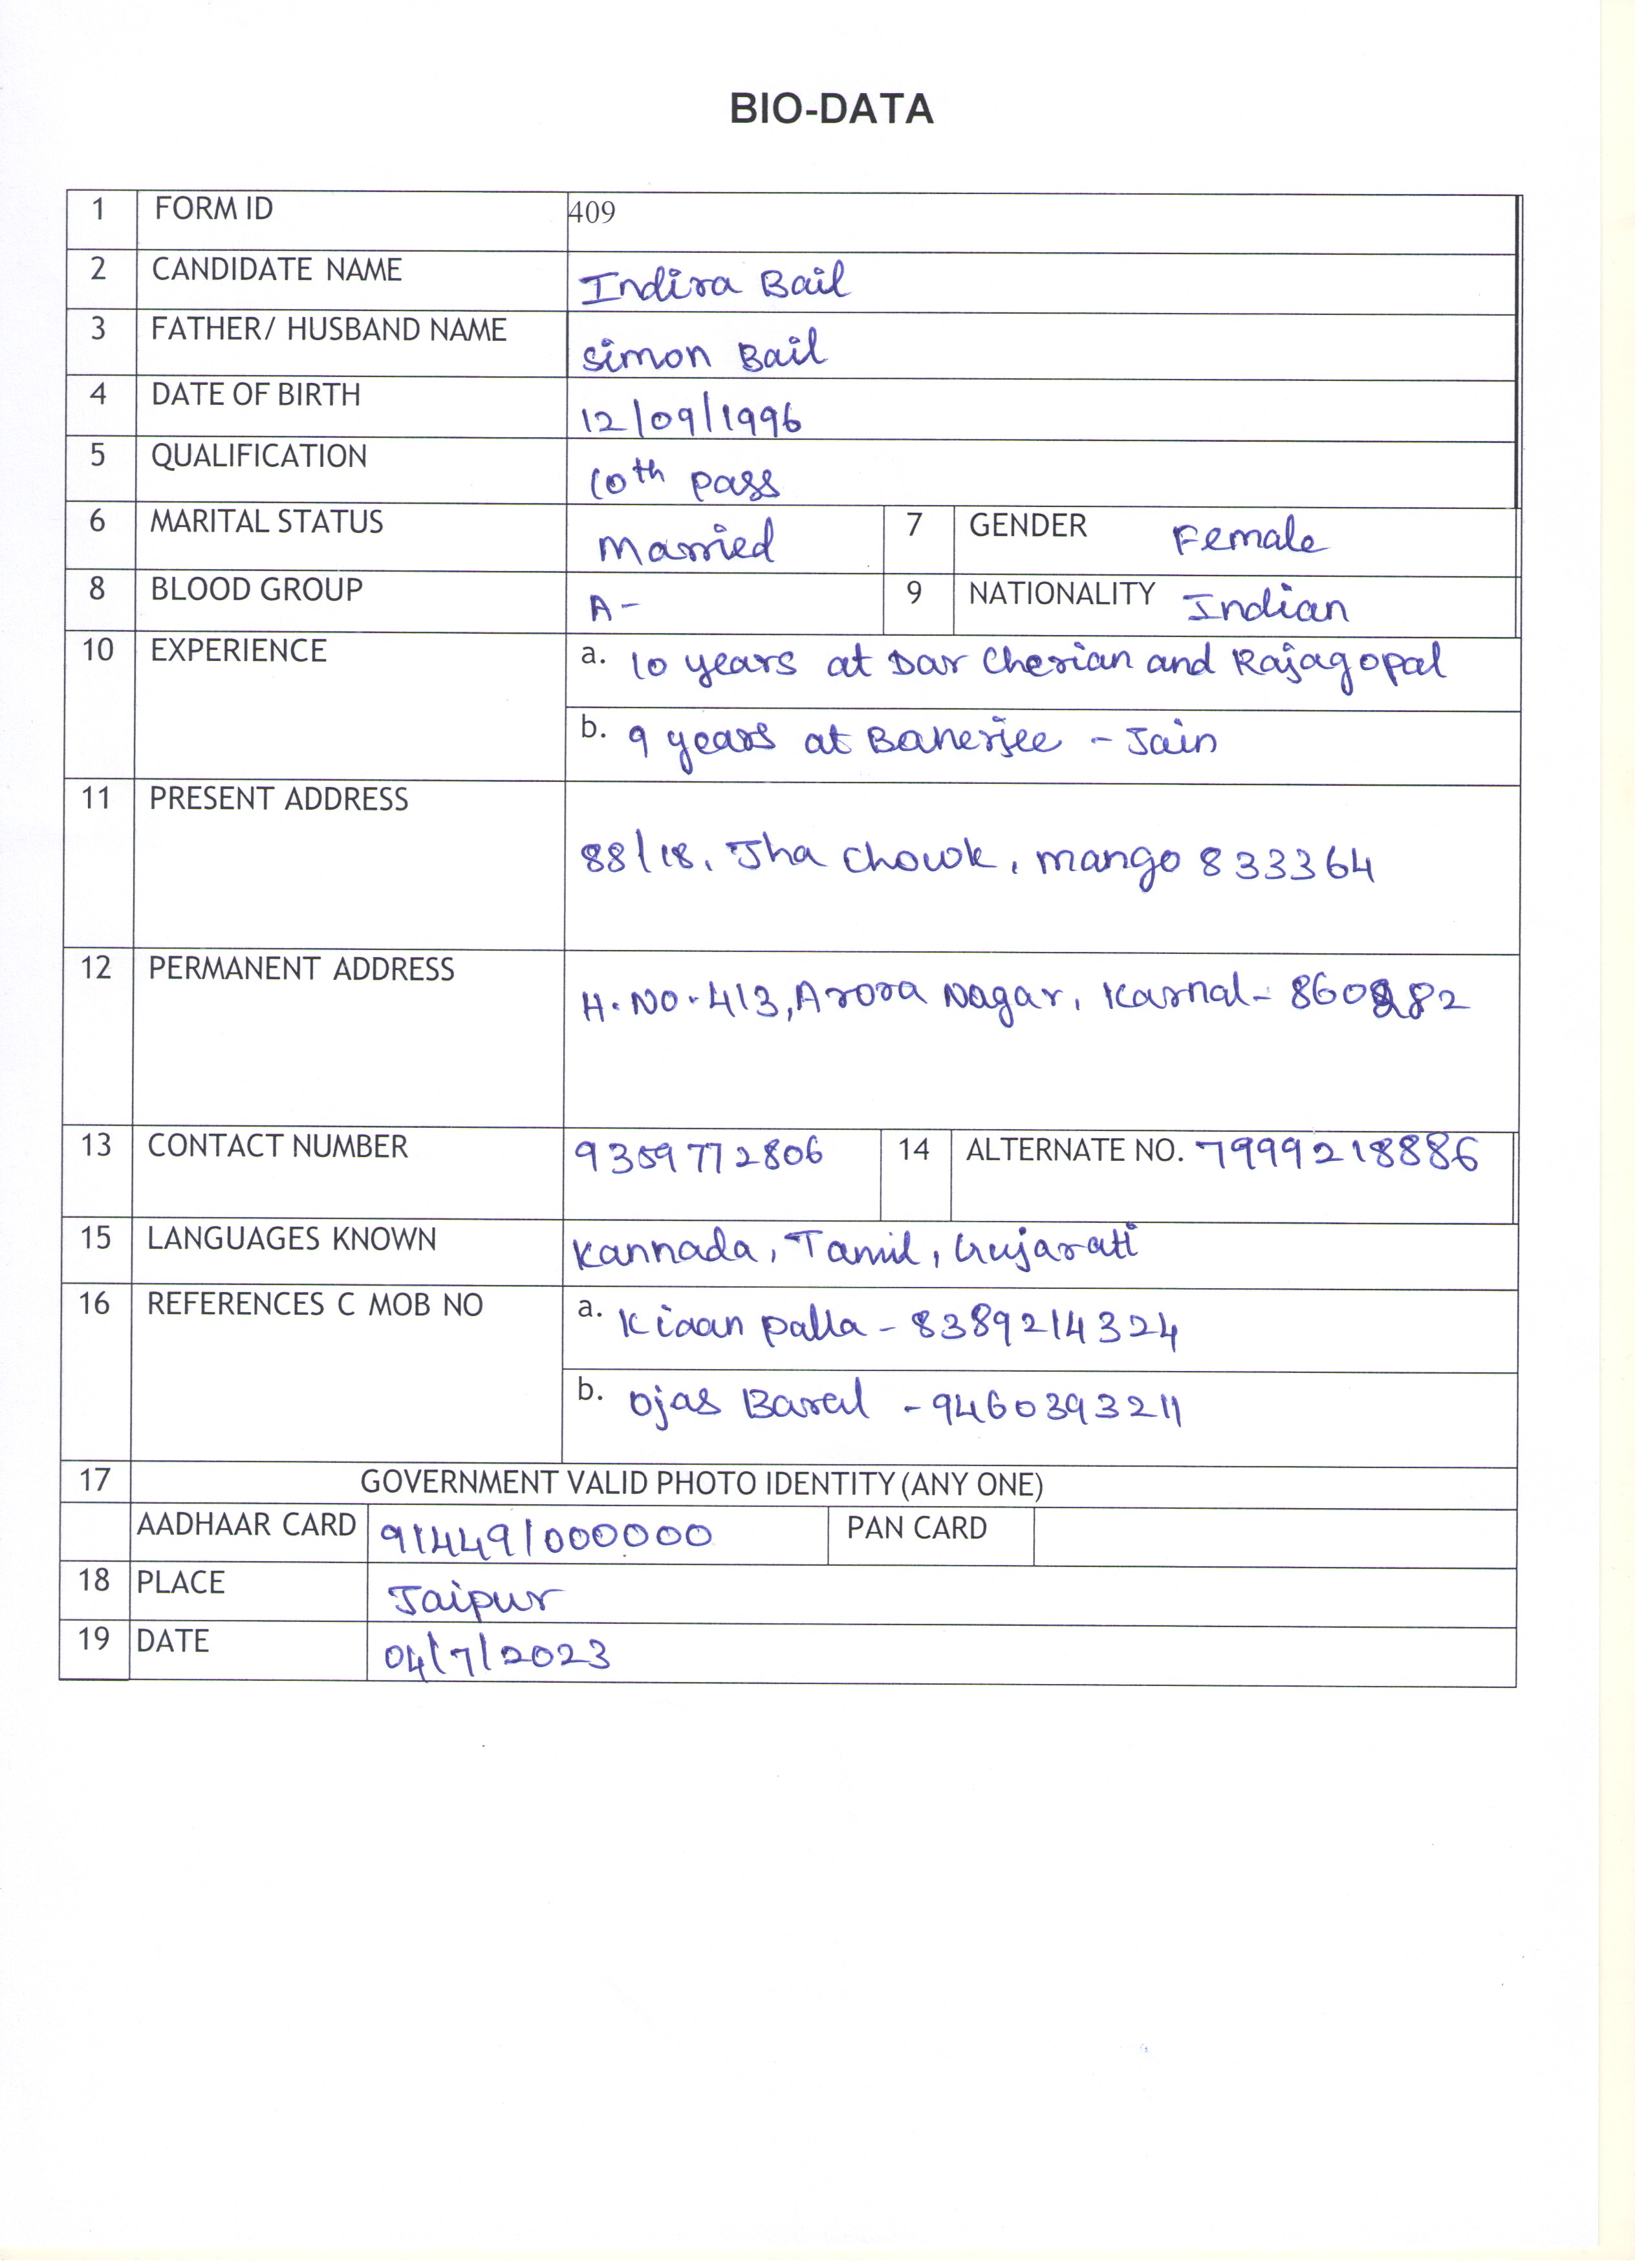 BIO-DATA
1 FORM ID 409
2 CANDIDATE NAME Indira Bail
3 FATHER/ HUSBAND NAME Simon Bail
4 DATE OF BIRTH 12/09/1996
5 QUALIFICATION 10th pass
6 MARITAL STATUS Married 7 GENDER Female
8 BLOOD GROUP A- 9 NATIONALITY Indian
10 EXPERIENCE a. 10 years at Dar Cherian and Rajagopal
b. 9 years at Banerjee - Jain
11 PRESENT ADDRESS
88/18, Jha Chowk, Mango 833364
12 PERMANENT ADDRESS
H.NO.413, Arora Nagar, Karnal-
13 CONTACT NUMBER 9359772806 14 ALTERNATE NO. 7999218886
15 LANGUAGES KNOWN Kannada, Tamil, Gujarati
16 REFERENCES C MOB NO a. Kiaan Palla - 8389214324
b. Ojas Baral - 9460393211
17 GOVERNMENT VALID PHOTO IDENTITY (ANY ONE)
AADHAAR CARD 914491000000 PAN CARD
18 PLACE Jaipur
19 DATE 04/7/2023